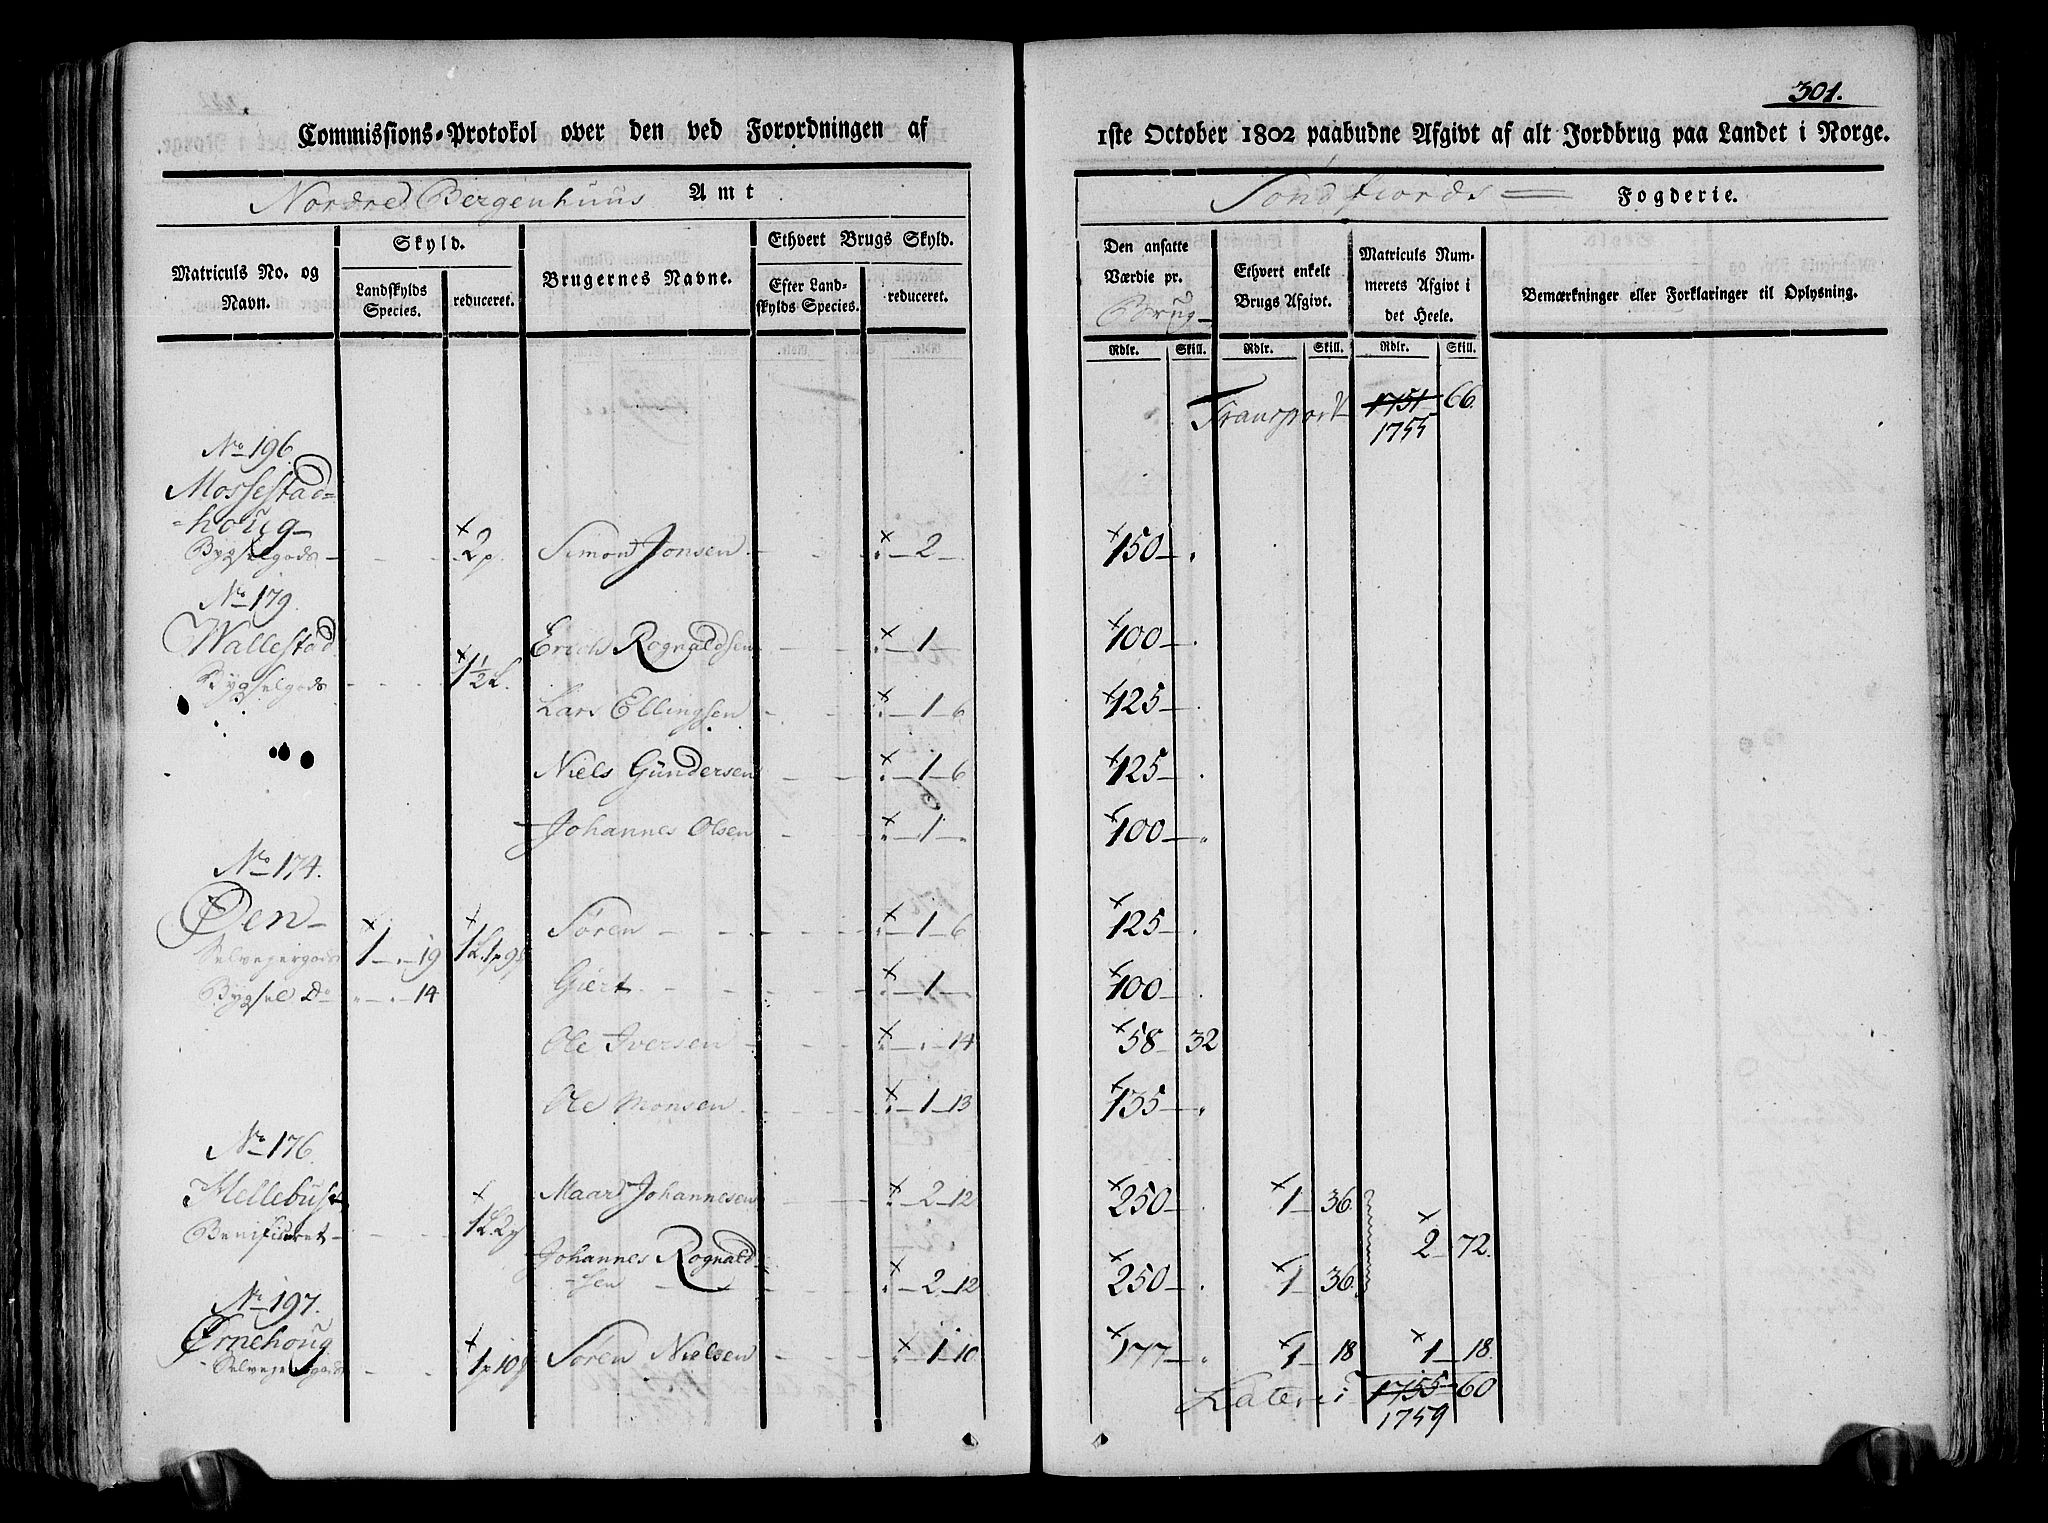 301.
Commissions-Protokol over den ved Forordningen af 1ste October 1802 paabudne Afgivt af alt Jordbrug paa Landet i Norge.
Nordre Bergenhuus Amt Søndfiords Fogderie.
Matriculs No. og Navn.
Skyld.
Landskylds Species.
reduceret.
Brugernes Navne.
Ethvert Brugs Skyld.
Efter Landskylds Species.
reduceret.
Den ansatte Værdie pr. Brug
Ethvert enkelt Brugs Afgivt.
Matriculs Nummerets Afgivt i det Heele.
Bemærkninger eller Forklaringer til Oplysning.
Rdlr. Skill. Rdlr. Skill. Rdlr. Skill.
Transport 1751 66.
1755
No 196
Mossestad=
=houg
Bygselgods 2p. Simon Jonsen 2 150
No 179.
Wallestad Erich Rognaldsen 1 100
Bygselgods 1 1/2 L. Lars Ellingsen 1 6 125
Niels Gundersen 1 6 125
Johannes Olsen 1 100
No 174.
Øen Søren 1 6 125
Selvejergods 1 19
Bygsel Do 14 Giert 1 100
Ole Iversen 14 58 32
Ole Monsen 1 13 155
No 176.
Mellebust Maars Johannesen 2 12 250 1 36
Benificeret 2 72.
Johannes Rognald=
=sen 2 12 250 1 36
No 197.
Ørnehoug
Selvejergods Søren Nielsen 1 10 177 1 18 1 18.
Lateris 1755 60
1759